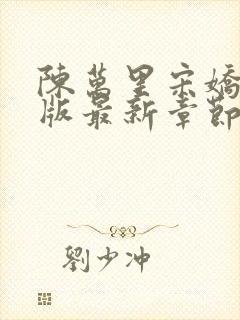 陳萬里宋嬌
版最新章節
劉少冲